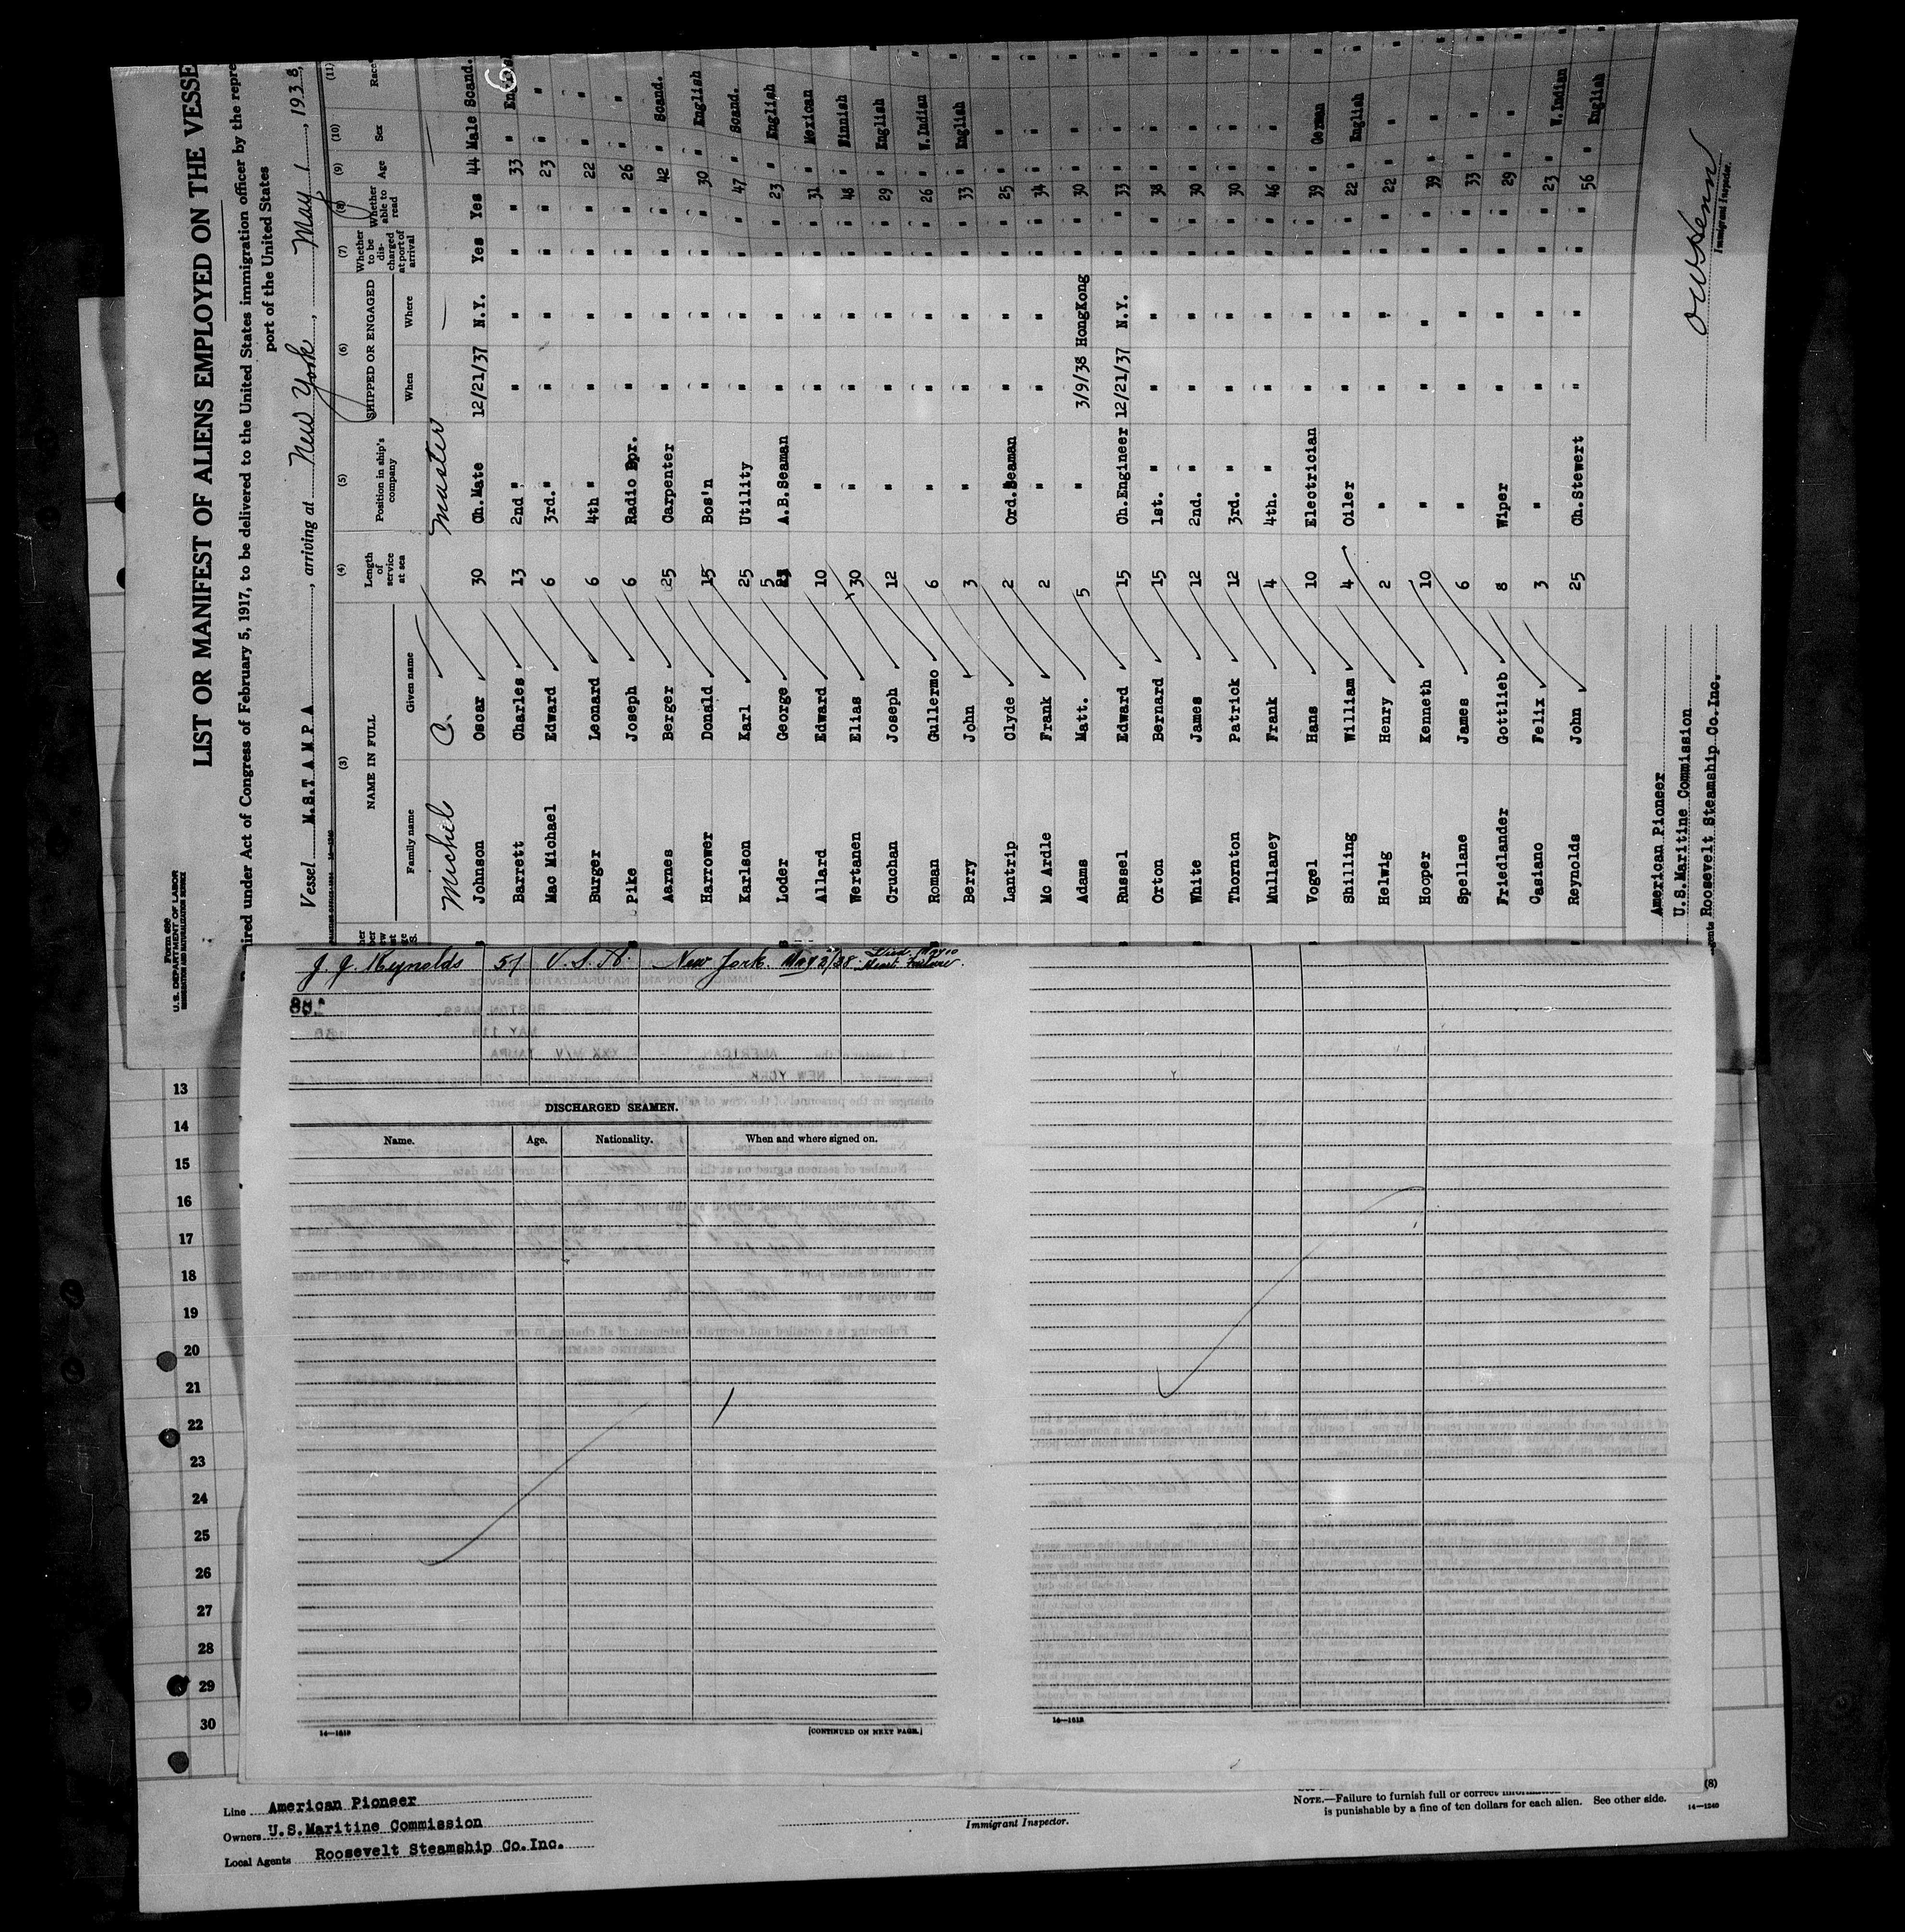 Form 680
U.S. DEPARTMENT OF LABOR
IMMIGRATION AND NATURALIZATION SERVICE
LIST OR MANIFEST OF ALIENS EMPLOYED ON THE VESSE
ired under Act of Congress of February 5, 1917, to be delivered to the United States immigration officer by the repre
port of the United States
Vessel M.S.T A M P A, arriving at New York, May 1, 1938,
(3) (4) (5) (6) (7) (8) (9) (10) (11)
NAME IN FULL Length of service at sea Position in ship's company SHIPPED OR ENGAGED Whether to be discharged at port of arrival Whether able to read Age Sex Race
Family name Given name When Where
Michel C. Master
Johnson Oscar 30 Ch.Mate 12/21/37 N.Y. Yes Yes 44 Male Scand.
Barrett Charles 13 2nd " " " " " 33 " English
Mac Michael Edward 6 3rd." " " " " 23 " "
Burger Leonard 6 4th " " " " " 22 " "
Pike Joseph 6 Radio Opr. " " " " 26 " "
Aarnes Berger 25 Carpenter " " " " 42 " Scand.
Harrower Donald 15 Bos'n " " " " 30 " English
Karlson Karl 25 Utility " " " " 47 " Scand.
Loder George 5 A.B.Seaman " " " " 23 " English
Allard Edward 10 " " " " " 31 " Mexican
Wertanen Elias 30 " " " " " 48 " Finnish
Cruchan Joseph 12 " " " " " 29 " English
Roman Gullermo 6 " " " " " 26 " W.Indian
Berry John 3 " " " " " 33 " English
Lantrip Clyde 2 Ord.Seaman " " " " 25 " "
Mc Ardle Frank 2 " " " " " 34 " "
Adams Matt. 5 " 3/9/38 HongKong " " 30 " "
Russel Edward 15 Ch.Engineer 12/21/37 N.Y. " " 33 " "
Orton Bernard 15 1st. " " " " " 38 " "
White James 12 2nd. " " " " " 30 " "
Thornton Patrick 12 3rd. " " " " " 30 " "
Mullaney Frank 4 4th. " " " " " 46 " "
Vogel Hans 10 Electrician " " " " 39 " German
Shilling William 4 Oiler " " " " 22 " English
Helwig Henry 2 " " " " " 22 " "
Hooper Kenneth 10 " " " " " 39 " "
Spellane James 6 " " " " " 33 " "
Friedlander Gottlieb 8 Wiper " " " " 29 " "
Casiano Felix 3 " " " " " 23 " W.Indian
Reynolds John 25 Ch.Stewert " " " " 56 " English
American Pioneer
U.S.Maritine Commission
gents Roosevelt Steamship Co.Inc.
Immigrant Inspector.
J. J. Reynolds 57 U.S.A. New York. May 2/38. Died May 10 Heart Failure.
DISCHARGED SEAMEN.
Name. Age. Nationality. When and where signed on.
14—1619
[CONTINUED ON NEXT PAGE.]
14—1619
13
14
15
16
17
18
19
20
21
22
23
24
25
26
27
28
29
30
Line American Pioneer
Owners U.S.Maritine Commission
Local Agents Roosevelt Steamship Co.Inc.
Immigrant Inspector.
(8)
NOTE.—Failure to furnish full or correct information
is punishable by a fine of ten dollars for each alien. See other side.
14—1240